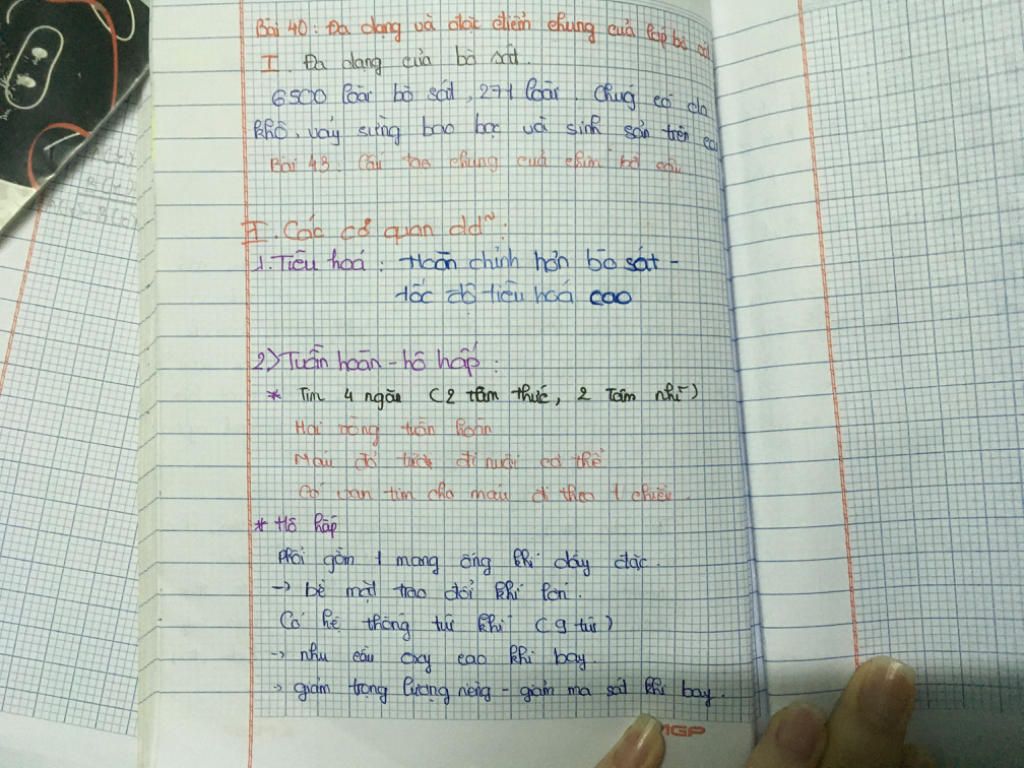 Bài 40: Đa dạng và đặc điểm chung của lớp bò sát
I. Đa dạng của bò sát.
6500 loài bò sát, 271 loài. Chúng có da
khô, vảy sừng bao bọc và sinh sản trên cạn
Bài 43: Cấu tạo chung cuả chim bồ câu
I. Các cơ quan dd~:
1. Tiêu hoá: Hoàn chỉnh hơn bò sát -
tốc độ tiêu hoá cao
2) Tuần hoàn - hô hấp:
* Tim 4 ngăn (2 tâm thức, 2 tâm nhĩ)
Hai vòng tuần hoàn
Máu đỏ tươi đi nuôi cơ thể
Có van tim cho máu đi theo 1 chiều.
* Hô hấp
Phổi gồm 1 mạng ống khí dày đặc.
→ bề mặt trao đổi khí lớn.
Có hệ thống túi khí (9 túi)
→ nhu cầu oxy cao khi bay.
→ giảm trọng lượng riêng - giảm ma sát khi bay.
MGP